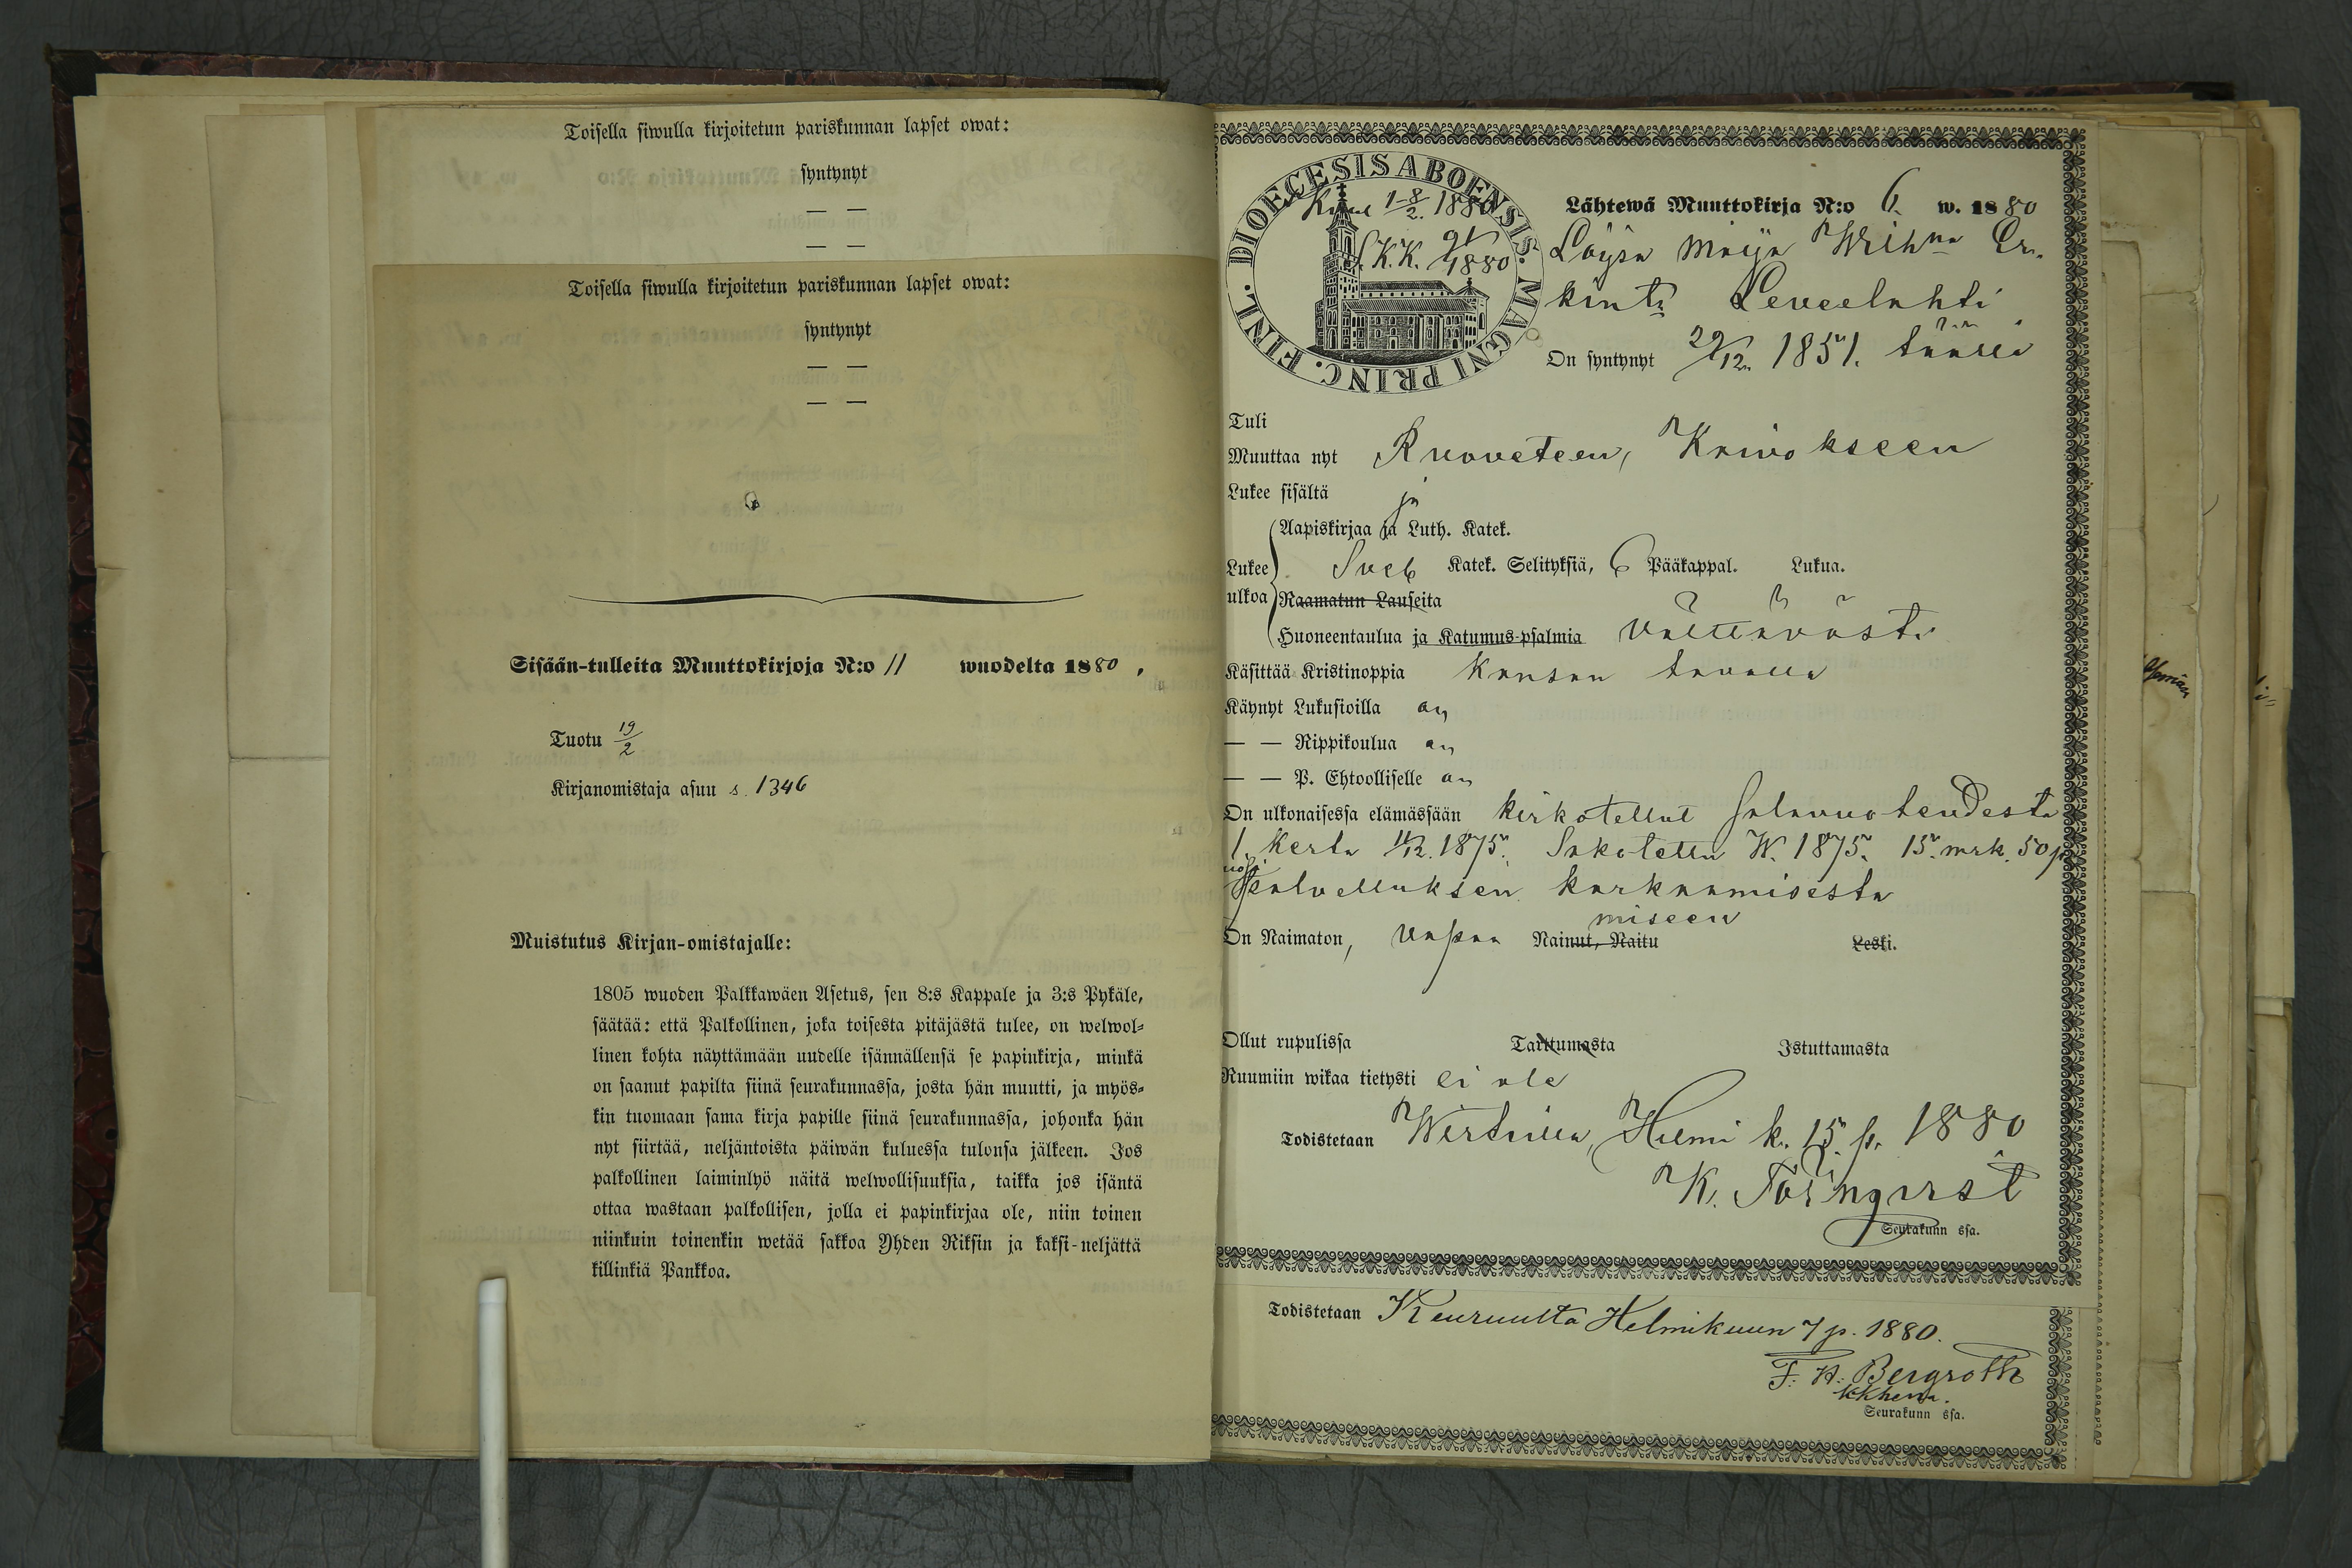 Toisella siwulla kirjoitetun pariskunnan lapset owat:
syntynyt
— —
— —
Toisella siwulla kirjoitetun pariskunnan lapset owat:
syntynyt
— —
— —
Sisään-tulleita Muuttokirjoja N:o 11 wuodelta 1880.
Tuotu 19/2
Kirjanomistaja asuu s. 1346
Muistutus Kirjan-omistajalle:
1805 wuoden Palkkawäen Asetus, sen 8:s Kappale ja 3:s Pykäle,
säätää: että Palkollinen, joka toisesta pitäjästä tulee, on welwol-
linen kohta näyttämään uudelle isännällensä se papinkirja, minkä
on saanut papilta siinä seurakunnassa, josta hän muutti, ja myös-
kin tuomaan sama kirja papille siinä seurakunnassa, johonka hän
nyt siirtää, neljäntoista päiwän kuluessa tulonsa jälkeen. Jos
palkollinen laiminlyö näitä welwollisuuksia, taikka jos isäntä
ottaa wastaan palkollisen, jolla ei papinkirjaa ole, niin toinen
niinkuin toinenkin wetää sakkoa Yhden Riksin ja kaksi-neljättä
killinkiä Pankkoa.
DIOECESIS ABOENSIS. MAGNI PRINC. FINL.
1-8/2. 1880
S.K.K. 91/1880
Lähtewä Muuttokirja N:o 6. w. 1880
Löysä Maija Wilh:na Er.
kint: Leveelahti
On syntynyt 29/12. 1851. täällä
Tuli
Muuttaa nyt Ruoveteen, Kaivokseen
Lukee sisältä ja
Aapiskirjaa ja Luth. Katek.
Lukee ulkoa Sveb Katek. Selityksiä, 6 Pääkappal. Lukua.
Raamatun Lauseita
Huoneentaulua ja Katumus-psalmia välttävästi
Käsittää Kristinoppia Kansan tavalla
Käynyt Lukusioilla on
— — Rippikoulua on
— — P. Ehtoolliselle on
On ulkonaisessa elämässään kirkotellut salavuoteudesta
1. kerta 11/12. 1875. Sakotettu W. 1875. 15 mrk. 50 p
palvelluksen karkaamisesta
miseen
On Naimaton, vapaa Nainut, Naitu Leski.
Ollut rupulissa Tarttumasta Istuttamasta
Ruumiin wikaa tietysti ei ole
Todistetaan Wirtailla, Helmi k. 15 p. 1880
K. Törnqvist
Seurakunn ssa.
Todistetaan Keuruulta Helmikuun 7 p. 1880.
F. H. Bergroth
kkherra.
Seurakunn ssa.